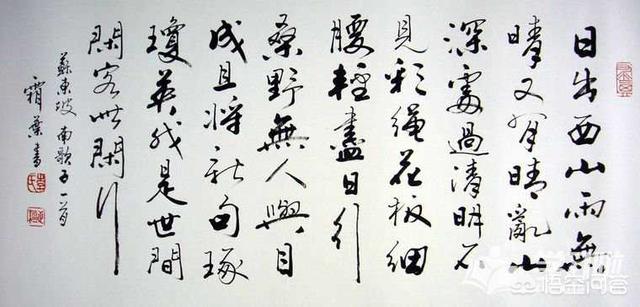 日出西山雨無
晴又有晴亂山
深處過清明不
見彩繩花板細
腰輕盡日行
桑野無人與目
成且將新句琢
瓊英我是世間
閑客此閑行
蘇東坡 南歌子一首
霜葉書
悟空问答